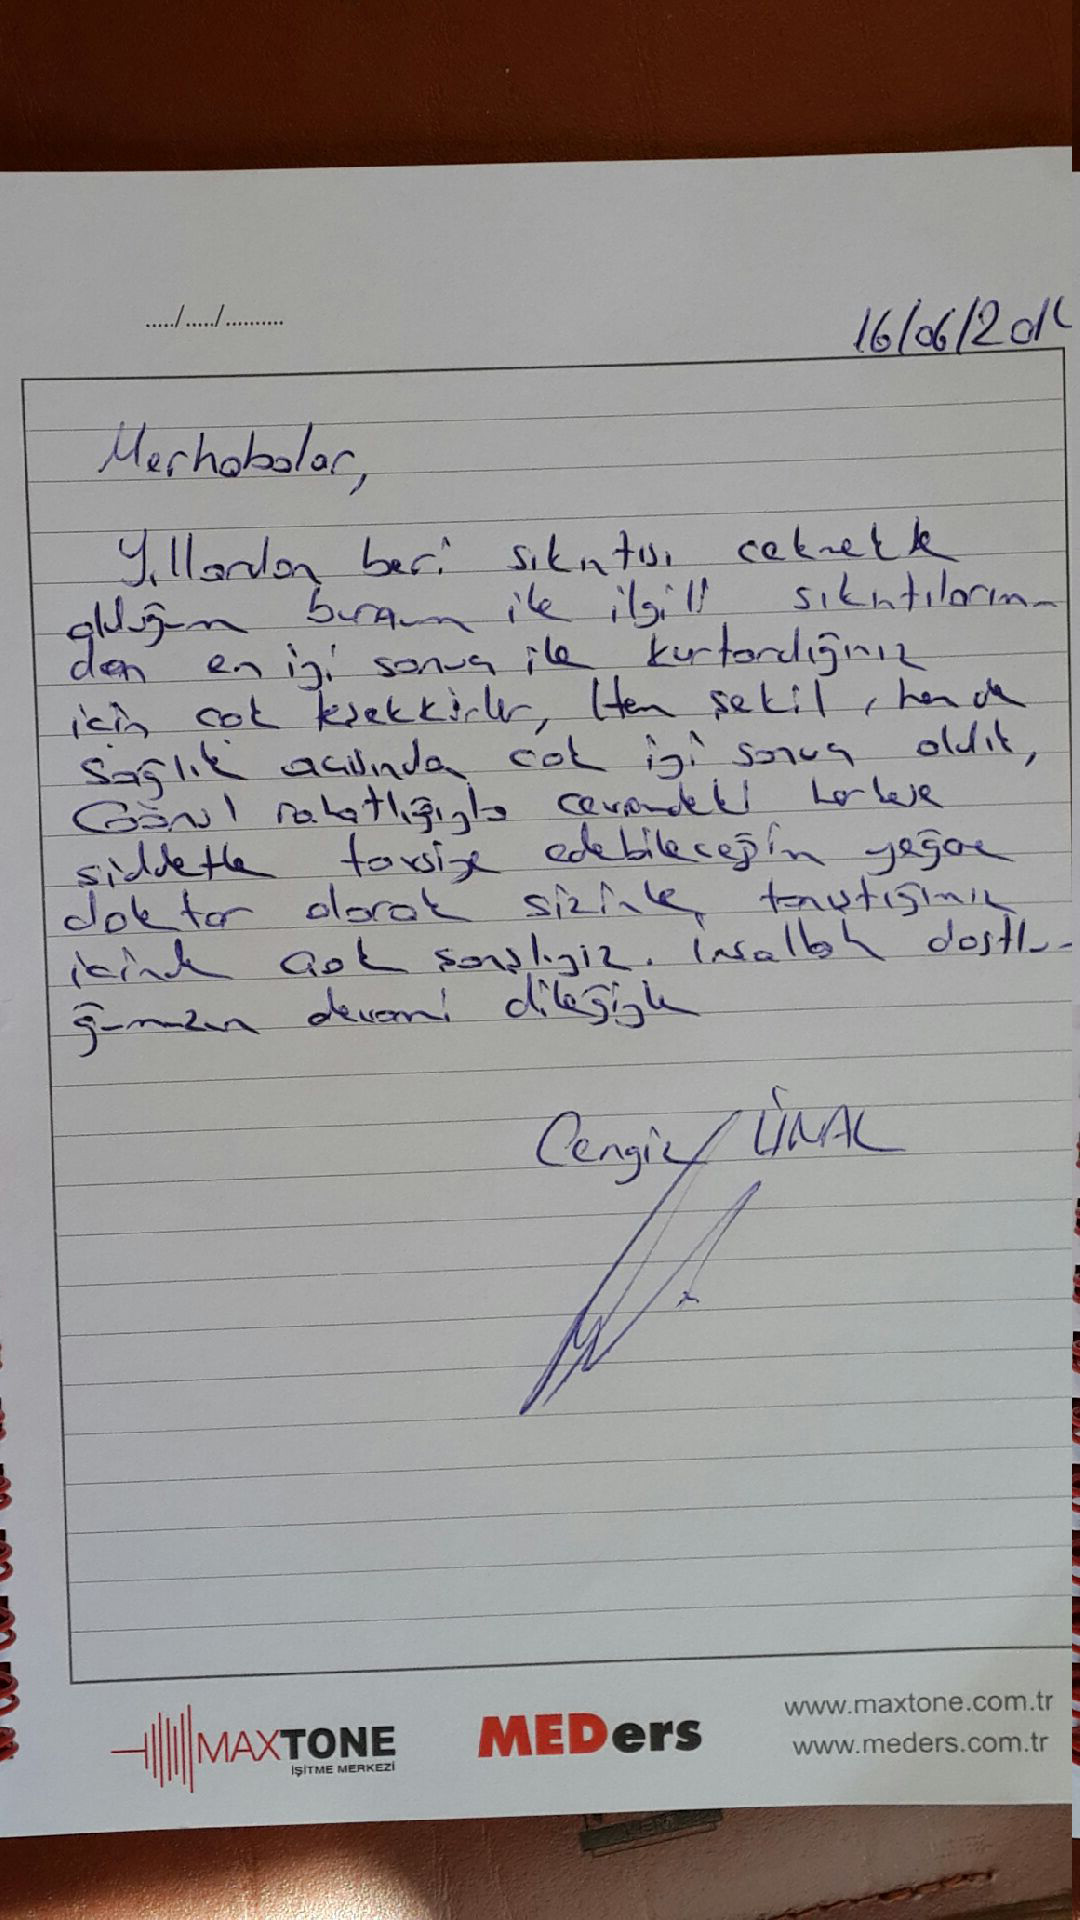 ...../...../..........
16/06/201
Merhabalar,
Yıllardan beri sıkıntısı çekmekte
olduğum burnum ile ilgili sıkıntıların-
dan en iyi sonuç ile kurtardığınız
için çok teşekkürler, Hem şekil, hemde
sağlık açısında çok iyi sonuç aldık,
Gönül rahatlığıyla çevremdeki herkese
şiddetle tavsiye edebileceğim yegane
doktor olarak sizinle tanıştığımız
içinde çok şanslıyız. İnşallah dostlu-
ğumuzun devamı dileğiyle
Cengiz ÜNAL
MAXTONE
İŞİTME MERKEZİ
MEDers
www.maxtone.com.tr
www.meders.com.tr